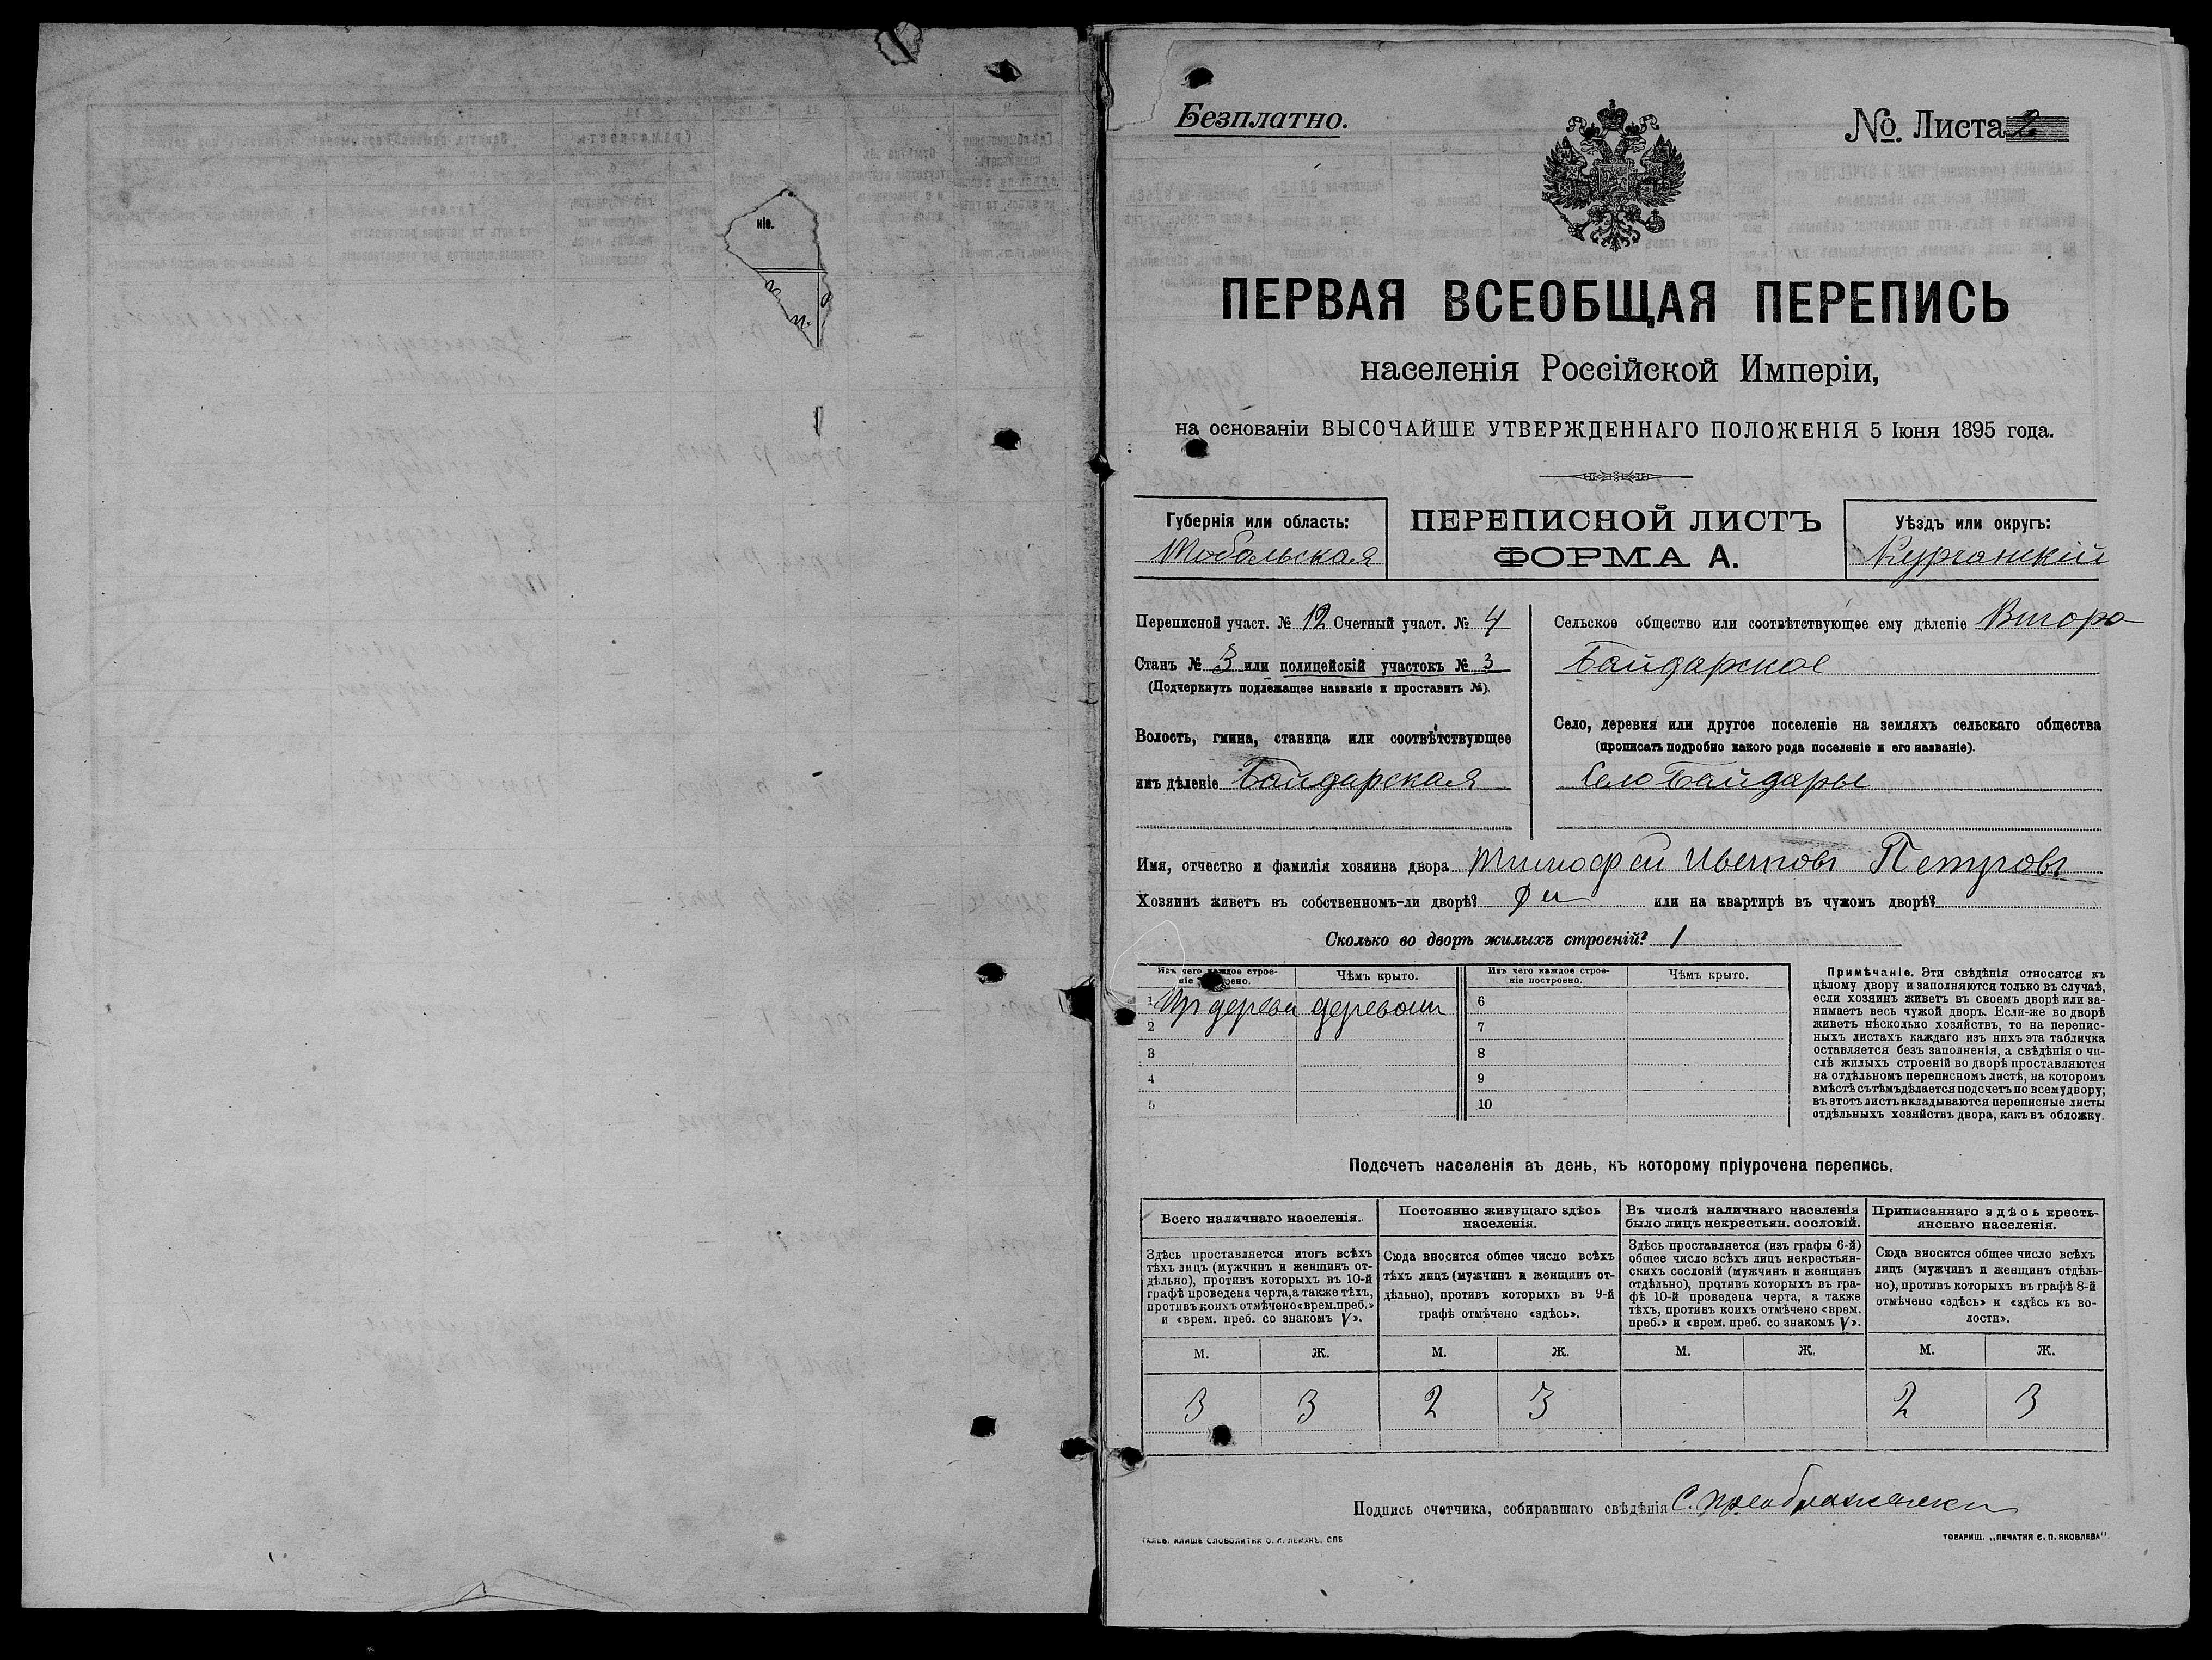 ніе.
Безплатно.
№. Листа 2
ПЕРВАЯ ВСЕОБЩАЯ ПЕРЕПИСЬ
населенія Россійской Имперіи,
на основаніи ВЫСОЧАЙШЕ УТВЕРЖДЕННАГО ПОЛОЖЕНІЯ 5 Іюня 1895 года.
Губернія или область:
Тобольская
ПЕРЕПИСНОЙ ЛИСТЪ
ФОРМА А.
Уѣздъ или округъ:
Курганскій
Переписной участ. № 12 Счетный участ. № 4
Станъ № 3 или полицейскій участокъ № 3
(Подчеркнуть подлежащее названіе и проставить №).
Волость, гмина, станица или соотвѣтствующее
имъ дѣленіе Байдарская
Сельское общество или соотвѣтствующее ему дѣленіе Второ
Байдарское
Село, деревня или другое поселеніе на земляхъ сельскаго общества
(прописать подробно какого рода поселеніе и его названіе).
Село Байдары
Имя, отчество и фамилія хозяина двора Тимофей Ивановъ Петровъ
Хозяинъ живетъ въ собственномъ-ли дворѣ? Да или на квартирѣ въ чужомъ дворѣ?
Сколько во дворѣ жилыхъ строеній? 1
Изъ чего каждое строеніе построено.
Чѣмъ крыто.
Изъ чего каждое строе-
ніе построено.
Чѣмъ крыто.
1 Изъ дерева деревом
2
3
4
5
6
7
8
9
10
Примѣчаніе. Эти свѣдѣнія относятся къ
цѣлому двору и заполняются только въ случаѣ,
если хозяинъ живетъ въ своемъ дворѣ или за-
нимаетъ весь чужой дворъ. Если-же во дворѣ
живетъ нѣсколько хозяйствъ, то на перепис-
ныхъ листахъ каждаго изъ нихъ эта табличка
оставляется безъ заполненія, а свѣдѣнія о чи-
слѣ жилыхъ строеній во дворѣ проставляются
на отдѣльномъ переписномъ листѣ, на которомъ
вмѣстѣ съ тѣмъ дѣлается подсчетъ по всему двору;
въ этотъ листъ вкладываются переписные листы
отдѣльныхъ хозяйствъ двора, какъ въ обложку.
Подсчетъ населенія въ день, къ которому пріурочена перепись.
Всего наличнаго населенія.
Здѣсь проставляется итогъ всѣхъ
тѣхъ лицъ (мужчинъ и женщинъ от-
дѣльно), противъ которыхъ въ 10-й
графѣ проведена черта, а также тѣхъ,
противъ коихъ отмѣчено «врем. преб.»
и «врем. преб. со знакомъ V».
Постоянно живущаго здѣсь
населенія.
Сюда вносится общее число всѣхъ
тѣхъ лицъ (мужчинъ и женщинъ от-
дѣльно), противъ которыхъ въ 9-й
графѣ отмѣчено «здѣсь».
Въ числѣ наличнаго населенія
было лицъ некрестьян. сословій.
Здѣсь проставляется (изъ графы 6-й)
общее число всѣхъ лицъ некрестьян-
скихъ сословій (мужчинъ и женщинъ
отдѣльно), противъ которыхъ въ гра-
фѣ 10-й проведена черта, а также
тѣхъ, противъ коихъ отмѣчено «врем.
преб.» и «врем. преб. со знакомъ V».
Приписаннаго здѣсь кресть-
янскаго населенія.
Сюда вносится общее число всѣхъ
лицъ (мужчинъ и женщинъ отдѣль-
но), противъ которыхъ въ графѣ 8-й
отмѣчено «здѣсь» и «здѣсь къ во-
лости».
М. Ж. М. Ж. М. Ж. М. Ж.
3 3 2 3 2 3
Подпись счетчика, собиравшаго свѣдѣнія С. Преображенски
ТОВАРИЩ. „ПЕЧАТНЯ С. П. ЯКОВЛЕВА“